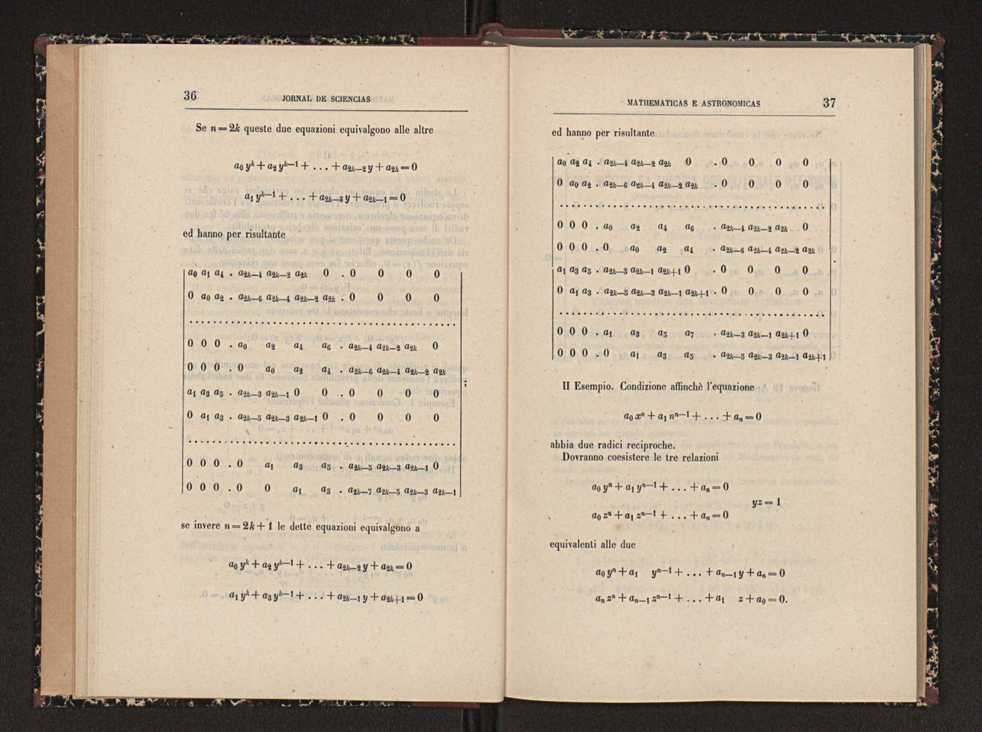 36
JORNAL DE SCIENCIAS
Se n = 2k queste due equazioni equivalgono alle altre
a₀ yᵏ + a₂ yᵏ⁻¹ + . . . + a₂ₖ₋₂ y + a₂ₖ = 0
a₁ yᵏ⁻¹ + . . . + a₂ₖ₋₃ y + a₂ₖ₋₁ = 0
ed hanno per risultante
a₀ a₁ a₄ . a₂ₖ₋₄ a₂ₖ₋₂ a₂ₖ 0 . 0 0 0 0
0 a₀ a₂ . a₂ₖ₋₆ a₂ₖ₋₄ a₂ₖ₋₂ a₂ₖ . 0 0 0 0
. . . . . . . . . . . . . . . . . . . . . . . . . . . . . . . . . . . . . . . .
0 0 0 . a₀ a₂ a₄ a₆ . a₂ₖ₋₄ a₂ₖ₋₂ a₂ₖ 0
0 0 0 . 0 a₀ a₂ a₄ . a₂ₖ₋₆ a₂ₖ₋₄ a₂ₖ₋₂ a₂ₖ
a₁ a₃ a₅ . a₂ₖ₋₃ a₂ₖ₋₁ 0 0 . 0 0 0 0 ;
0 a₁ a₃ . a₂ₖ₋₅ a₂ₖ₋₃ a₂ₖ₋₁ 0 . 0 0 0 0
. . . . . . . . . . . . . . . . . . . . . . . . . . . . . . . . . . . . . . . .
0 0 0 . 0 a₁ a₃ a₅ . a₂ₖ₋₅ a₂ₖ₋₃ a₂ₖ₋₁ 0
0 0 0 . 0 0 a₁ a₃ . a₂ₖ₋₇ a₂ₖ₋₅ a₂ₖ₋₃ a₂ₖ₋₁
se invere n = 2k + 1 le dette equazioni equivalgono a
a₀ yᵏ + a₂ yᵏ⁻¹ + . . . + a₂ₖ₋₂ y + a₂ₖ = 0
a₁ yᵏ + a₃ yᵏ⁻¹ + . . . + a₂ₖ₋₁ y + a₂ₖ₊₁ = 0
MATHEMATICAS E ASTRONOMICAS
37
ed hanno per risultante
a₀ a₂ a₄ . a₂ₖ₋₄ a₂ₖ₋₂ a₂ₖ 0 . 0 0 0 0
0 a₀ a₂ . a₂ₖ₋₆ a₂ₖ₋₄ a₂ₖ₋₂ a₂ₖ . 0 0 0 0
. . . . . . . . . . . . . . . . . . . . . . . . . . . . . . . . . . . . . . . .
0 0 0 . a₀ a₂ a₄ a₆ . a₂ₖ₋₄ a₂ₖ₋₂ a₂ₖ 0
0 0 0 . 0 a₀ a₂ a₄ . a₂ₖ₋₆ a₂ₖ₋₄ a₂ₖ₋₂ a₂ₖ
a₁ a₃ a₅ . a₂ₖ₋₃ a₂ₖ₋₁ a₂ₖ₊₁ 0 . 0 0 0 0
0 a₁ a₃ . a₂ₖ₋₅ a₂ₖ₋₃ a₂ₖ₋₁ a₂ₖ₊₁ . 0 0 0 0
. . . . . . . . . . . . . . . . . . . . . . . . . . . . . . . . . . . . . . . .
0 0 0 . a₁ a₃ a₅ a₇ . a₂ₖ₋₃ a₂ₖ₋₁ a₂ₖ₊₁ 0
0 0 0 . 0 a₁ a₃ a₅ . a₂ₖ₋₅ a₂ₖ₋₃ a₂ₖ₋₁ a₂ₖ₊₁
II Esempio. Condizione affinchè l'equazione
a₀ xⁿ + a₁ nⁿ⁻¹ + . . . + aₙ = 0
abbia due radici reciproche.
Dovranno coesistere le tre relazioni
a₀ yⁿ + a₁ yⁿ⁻¹ + . . . + aₙ = 0
yz = 1
a₀ zⁿ + a₁ zⁿ⁻¹ + . . . + aₙ = 0
equivalenti alle due
a₀ yⁿ + a₁ yⁿ⁻¹ + . . . + aₙ₋₁ y + aₙ = 0
aₙ zⁿ + aₙ₋₁ zⁿ⁻¹ + . . . + a₁ z + a₀ = 0.